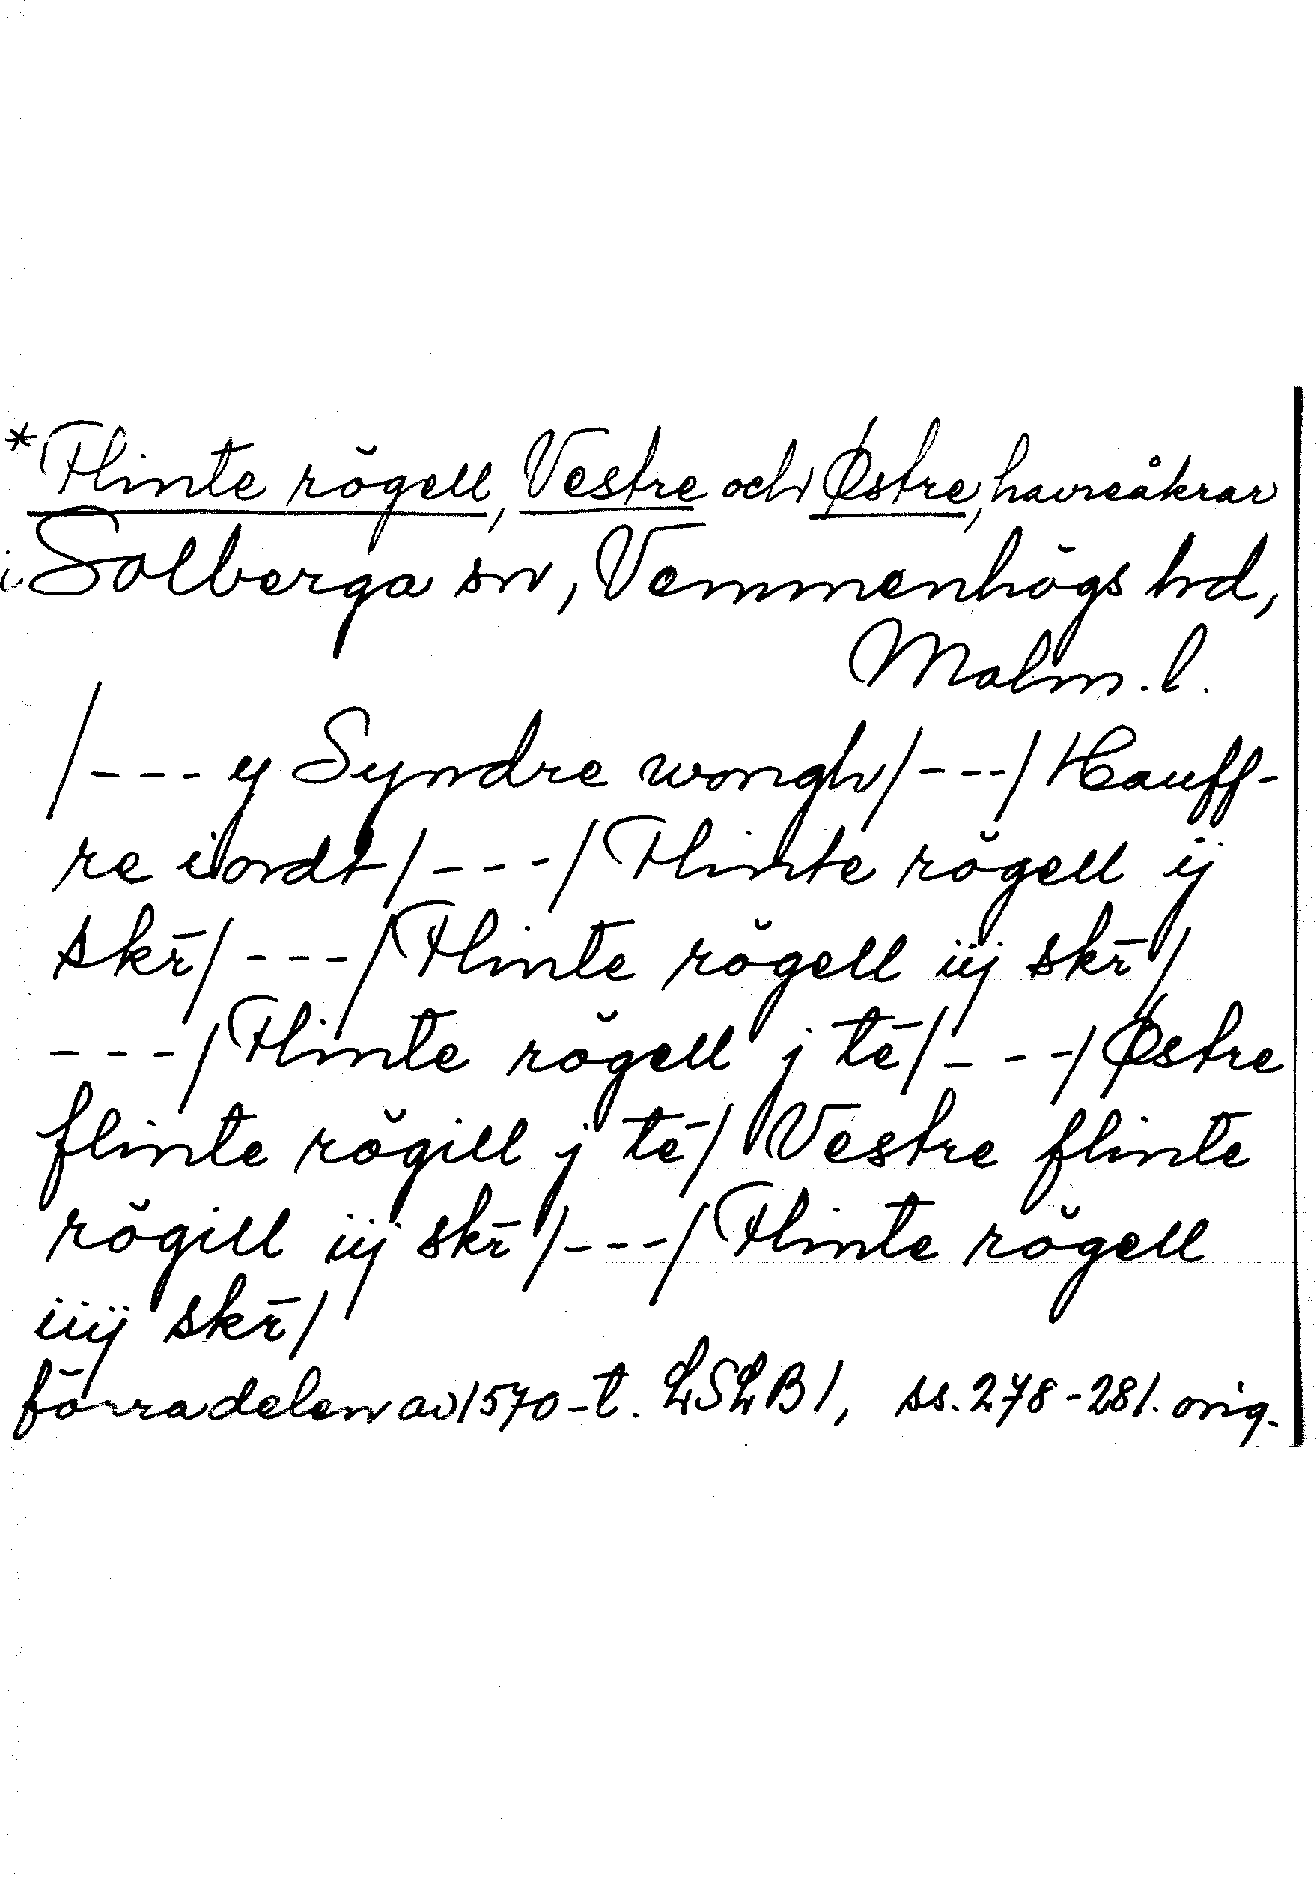 *Flinte rŏgell, Vestre och Østre, havreåkrar
i Solberga sn, Vemmenhögs hd,
Malm. l.
/---y Syndre wongh/---/Hauff-
re iordt/---/Flinte rŏgell ij
skr̄/---/Flinte rŏgell iij skr̄/
---/Flinte rŏgell j tē/---/Østre
flinte rŏgill j tē/Vestre flinte
rŏgill iij skr̄/---/Flinte rŏgell
iiij skr̄/
förra delen av 1570-t. LSLB 1, ss. 278-281. orig.